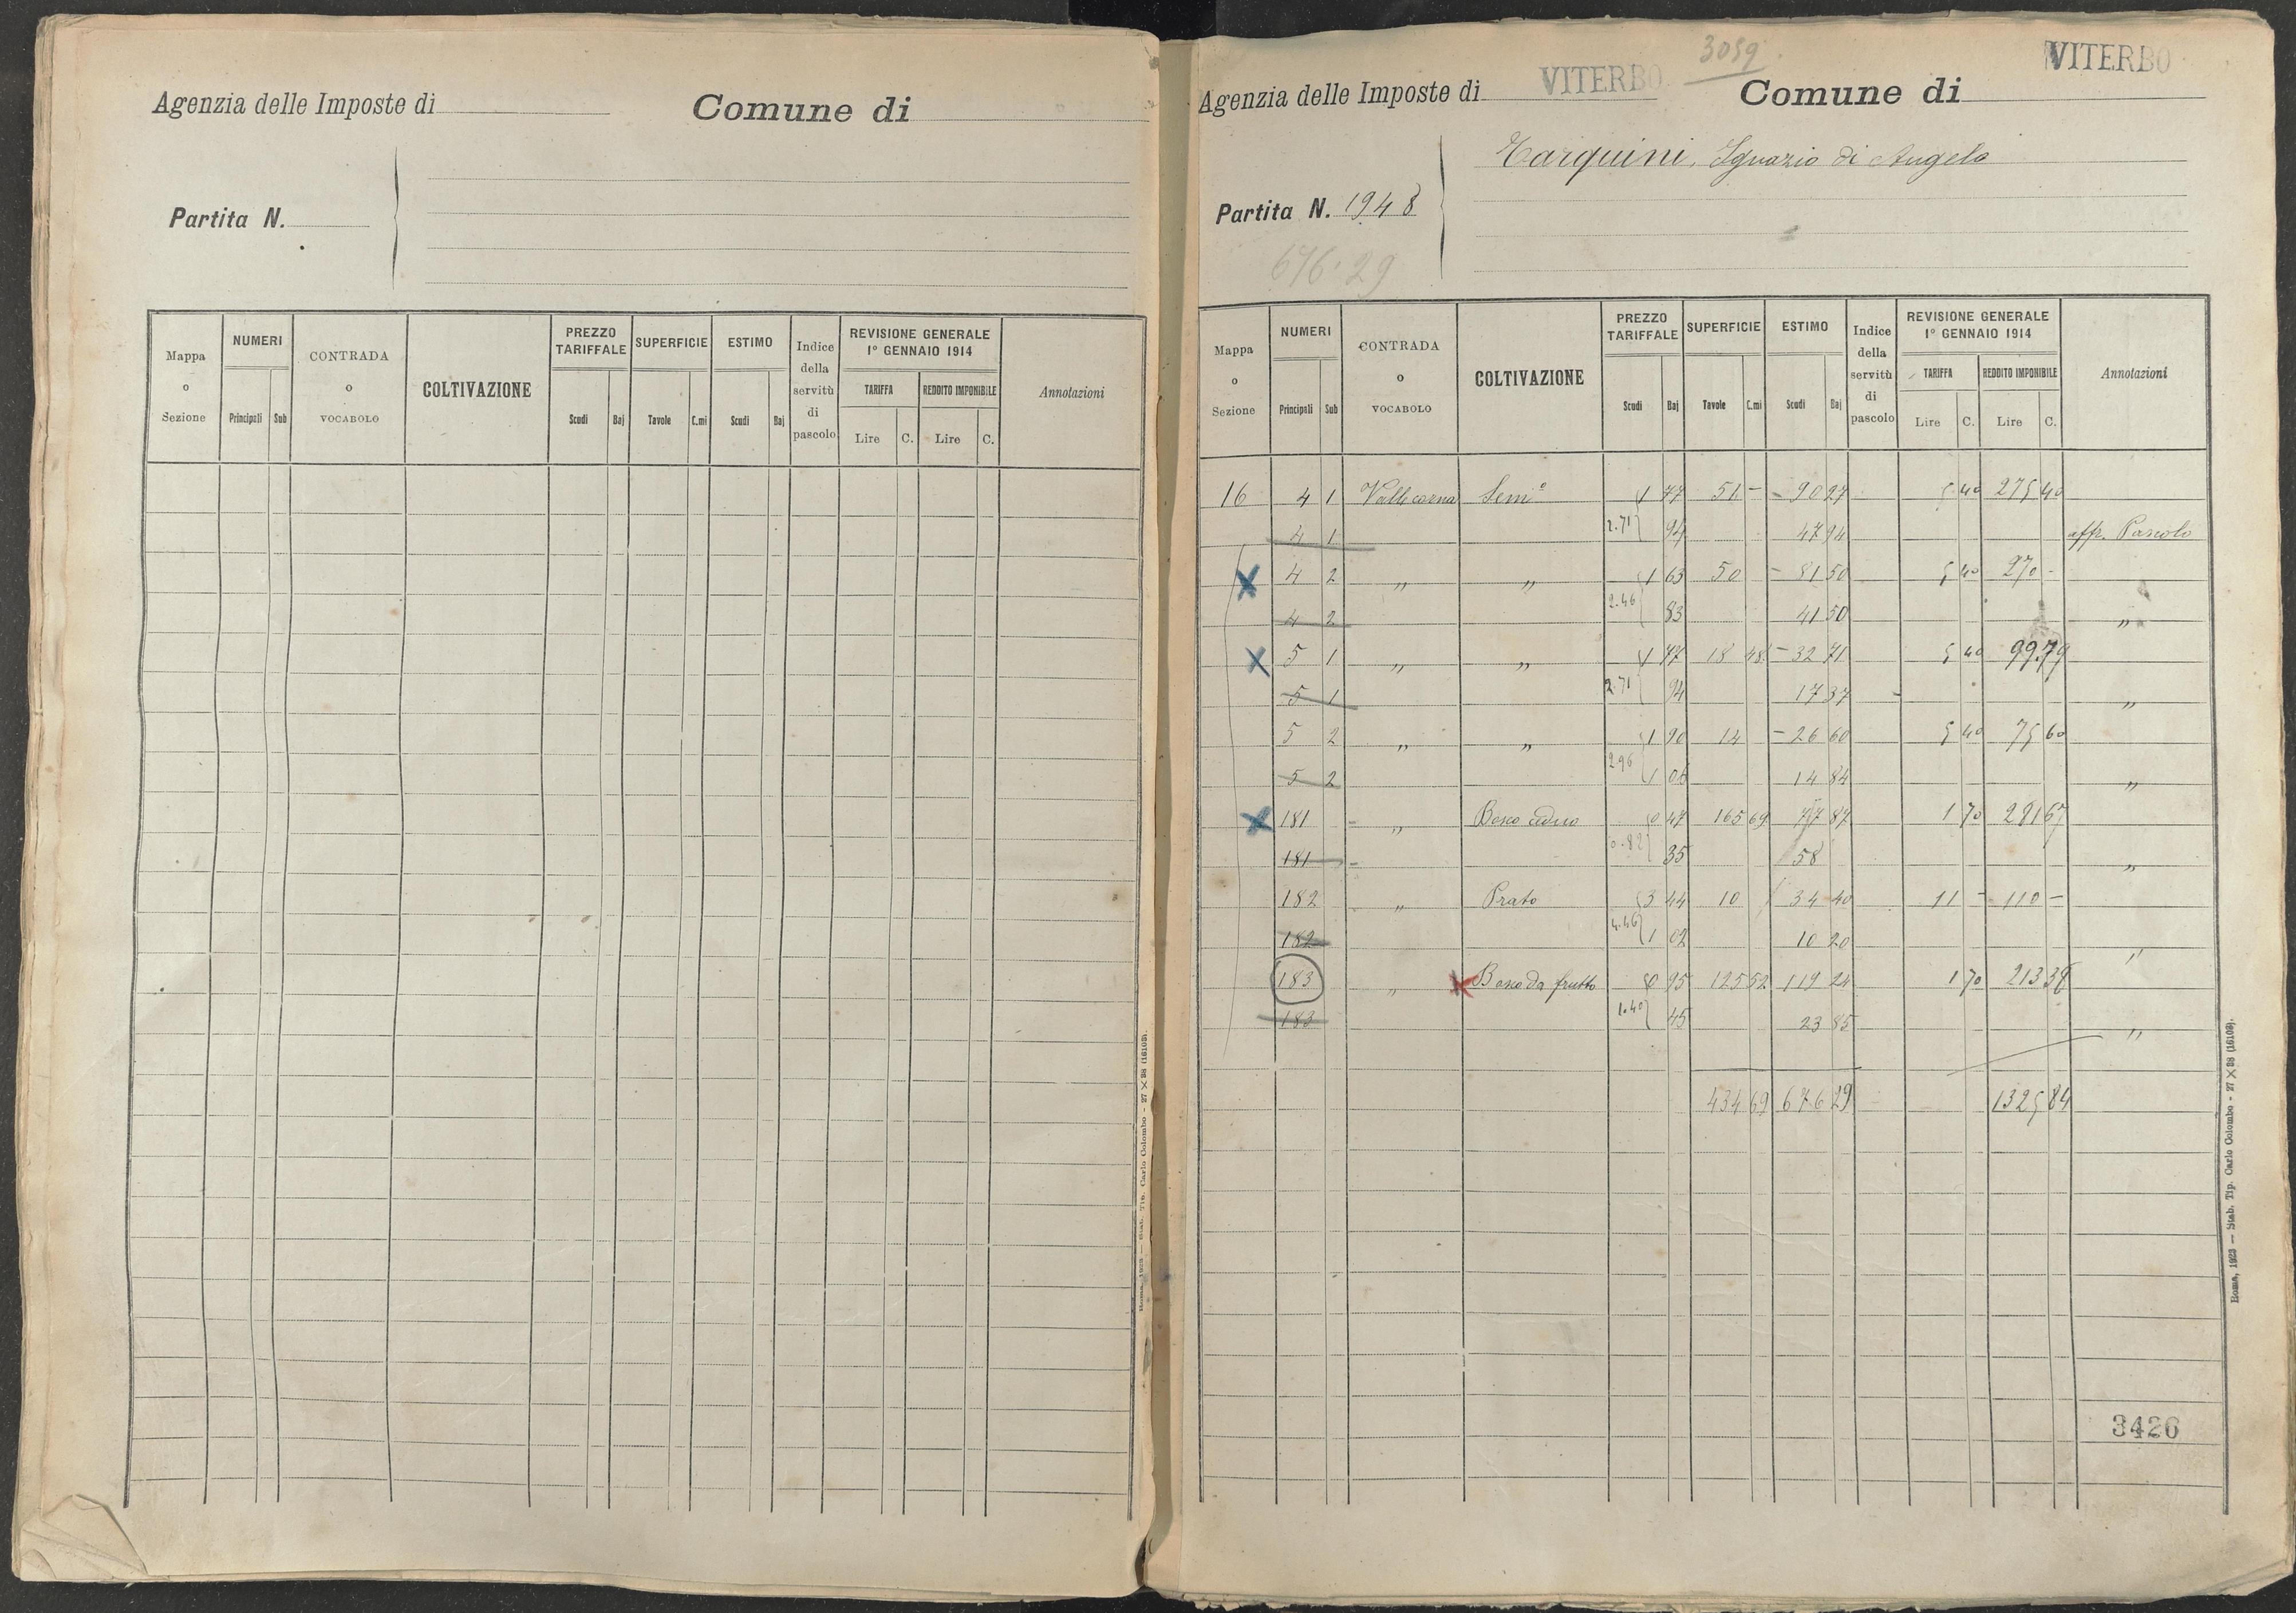 Agenzia delle Imposte di
Comune di
Partita N.
Mappa o Sezione
NUMERI
Principali Sub
CONTRADA o VOCABOLO
COLTIVAZIONE
PREZZO TARIFFALE
Scudi Baj
SUPERFICIE
Tavole C.mi
ESTIMO
Scudi Baj
Indice della servitù di pascolo
REVISIONE GENERALE 1° GENNAIO 1914
TARIFFA REDDITO IMPONIBILE
Lire C. Lire C.
Annotazioni
Roma, 1923 — Stab. Tip. Carlo Colombo - 27 × 38 (16103).
3059.
Agenzia delle Imposte di VITERBO
Comune di VITERBO
Tarquini, Ignazio di Angelo
Partita N. 1948
676.29
Mappa o Sezione
NUMERI
Principali Sub
CONTRADA o VOCABOLO
COLTIVAZIONE
PREZZO TARIFFALE
Scudi Baj
SUPERFICIE
Tavole C.mi
ESTIMO
Scudi Baj
Indice della servitù di pascolo
REVISIONE GENERALE 1° GENNAIO 1914
TARIFFA REDDITO IMPONIBILE
Lire C. Lire C.
Annotazioni
16 4 1 Semo 1 77 51 - - 90 27 5 40 275 40
4 1 2.71 94 47 94 aff. Pascolo
4 2 " " 1 63 50 - 81 50 5 40 270 -
4 2 2.46 83 41 50 "
5 1 " " 1 77 18 48 - 32 71 5 40 99 79
5 1 2.71 94 17 37 "
5 2 " " 1 90 14 - 26 60 5 40 75 60
5 2 2.96 1 06 14 84 "
181 - " Bosco ceduo 0 47 165 69 77 87 1 70 281 67
181 - 0.82 35 58 "
182 " Prato 3 44 10 34 40 11 - 110 -
182 4.46 1 02 10 20 "
183 " Bosco da frutto 0 95 125 52 119 24 1 70 213 38
183 1.40 45 23 85 "
434 69 676 29 1325 84
3426
Roma, 1923 — Stab. Tip. Carlo Colombo - 27 × 38 (16103).